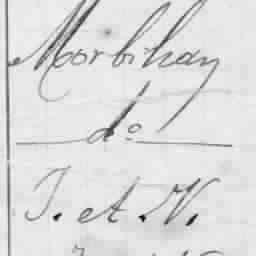 Morbihan
do
I. et V.